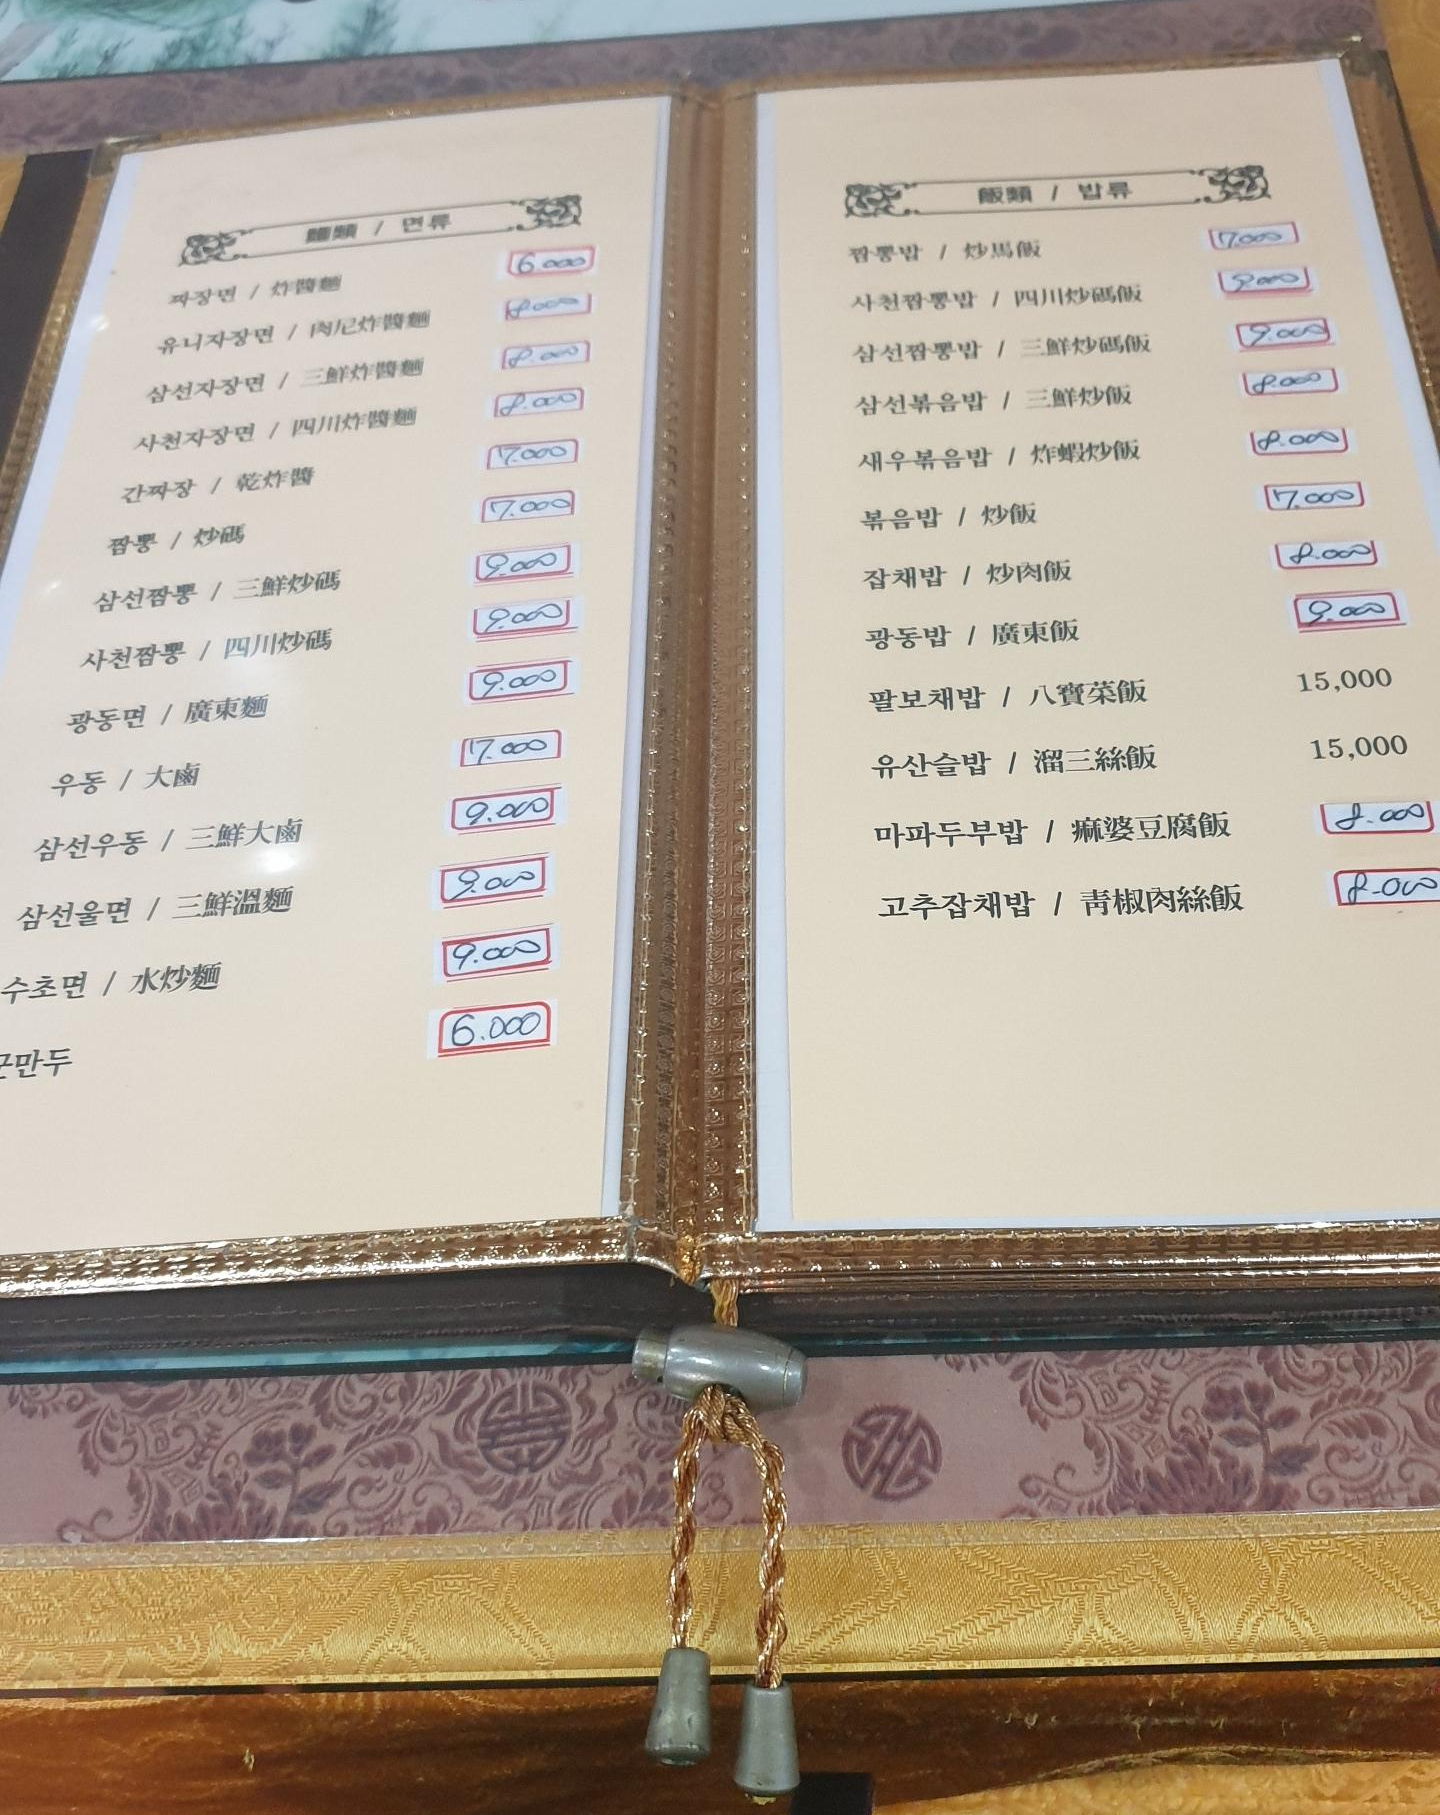 麵類 / 면류
짜장면 / 炸醬麵 6.000
유니자장면 / 肉尼炸醬麵 8.000
삼선자장면 / 三鮮炸醬麵 8.000
사천자장면 / 四川炸醬麵 8.000
간짜장 / 乾炸醬 7.000
짬뽕 / 炒碼 7.000
삼선짬뽕 / 三鮮炒碼 9.000
사천짬뽕 / 四川炒碼 9.000
광동면 / 廣東麵 9.000
우동 / 大鹵 7.000
삼선우동 / 三鮮大鹵 9.000
삼선울면 / 三鮮溫麵 9.000
수초면 / 水炒麵 9.000
군만두 6.000
飯類 / 밥류
짬뽕밥 / 炒馬飯 7.000
사천짬뽕밥 / 四川炒碼飯 9.000
삼선짬뽕밥 / 三鮮炒碼飯 9.000
삼선볶음밥 / 三鮮炒飯 8.000
새우볶음밥 / 炸蝦炒飯 8.000
볶음밥 / 炒飯 7.000
잡채밥 / 炒肉飯 8.000
광동밥 / 廣東飯 9.000
팔보채밥 / 八寶菜飯 15,000
유산슬밥 / 溜三絲飯 15,000
마파두부밥 / 痲婆豆腐飯 8.000
고추잡채밥 / 靑椒肉絲飯 8.000